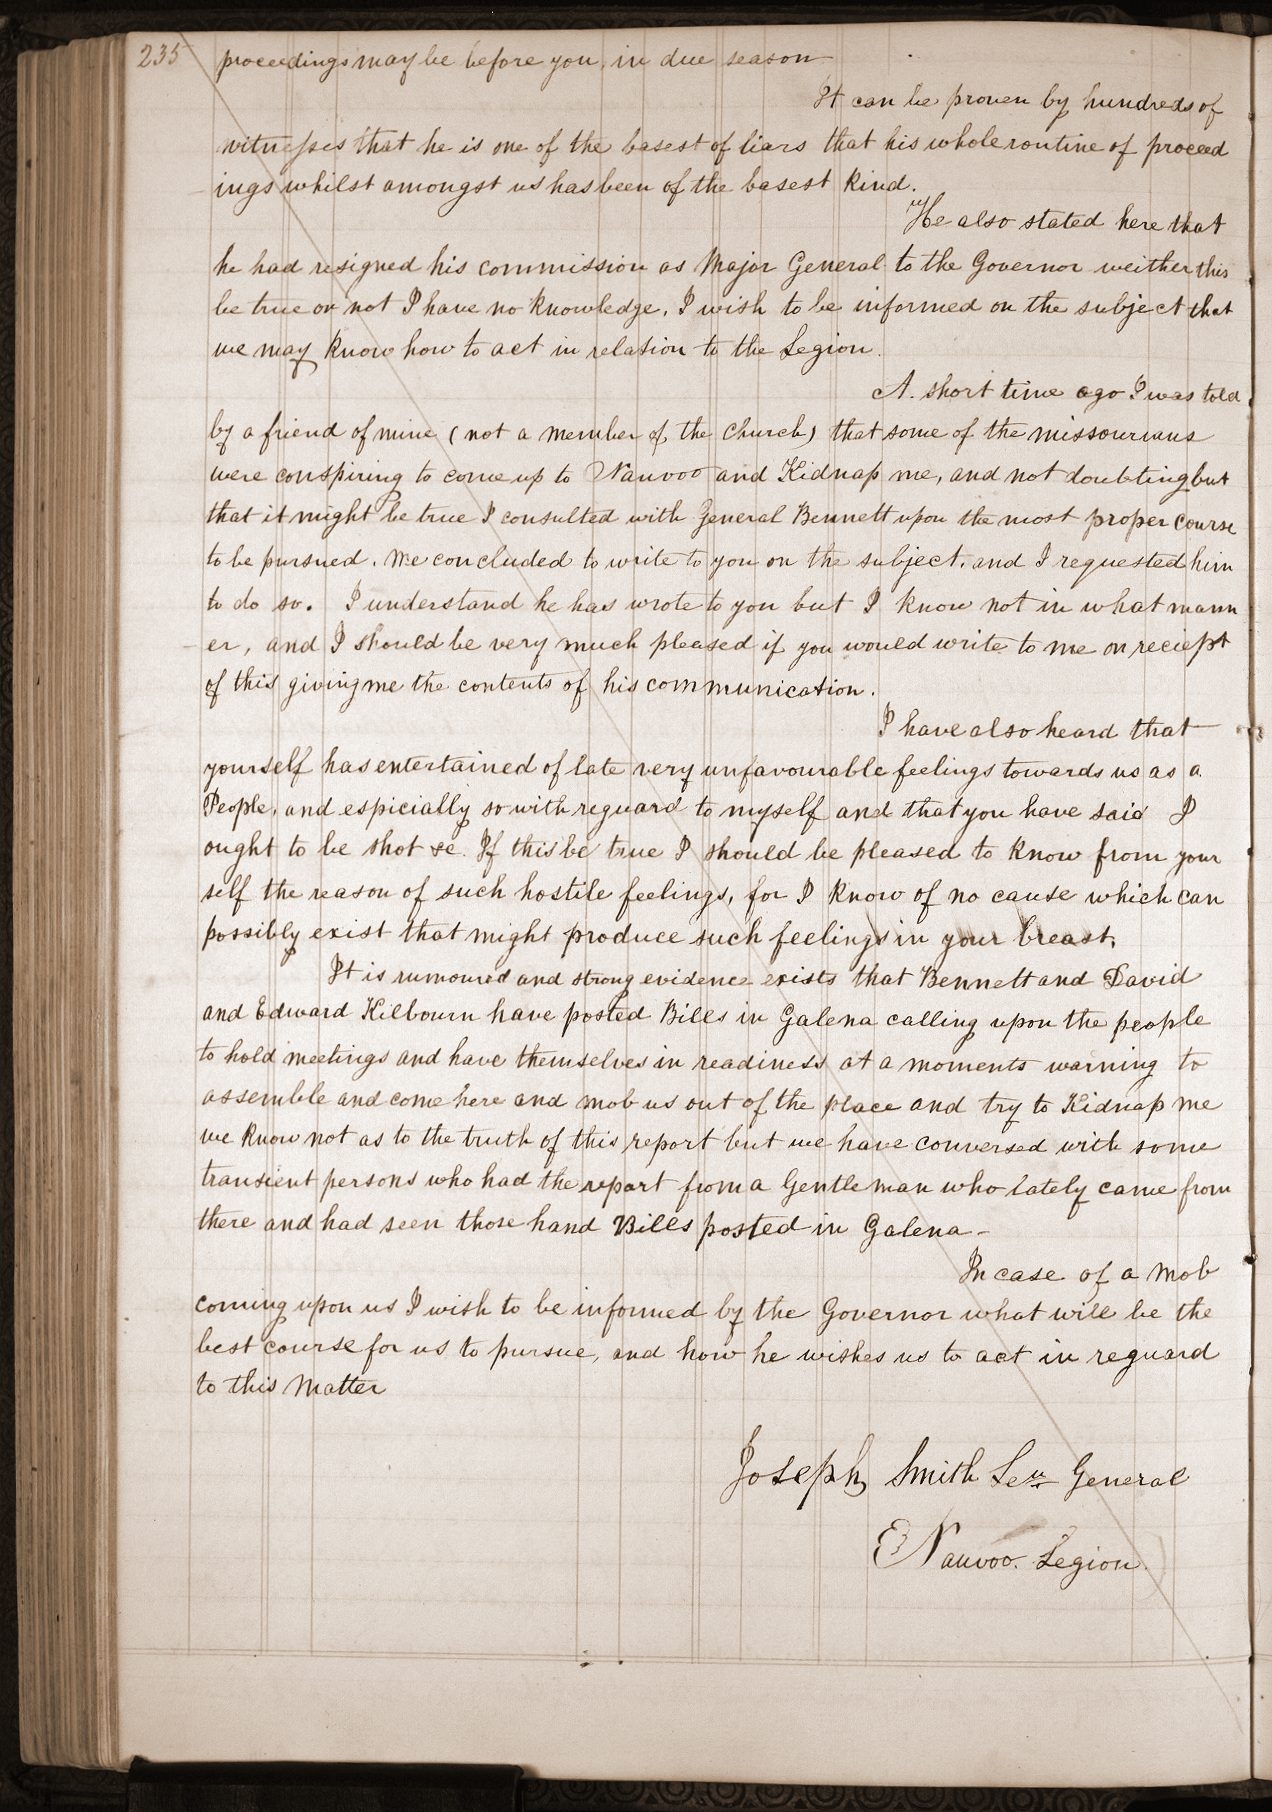 235 proceedings may be before you, in due season
It can be proven by hundreds of
witnesses that he is one of the basest of liars that his whole routine of proceed
ings whilst amongst us has been of the basest kind.
He also stated here that
he had resigned his commission as Major General to the Governor weither this
be true or not I have no knowledge. I wish to be informed on the subject that
we may know how to act in relation to the Legion.
A. short time ago I was told
by a friend of mine (not a member of the church) that some of the missourians
were conspiring to come up to Nauvoo and Kidnap me, and not doubting but
that it might be true I consulted with General Bennett upon the most proper course
to be pursued. We concluded to write to you on the subject. and I requested him
to do so. I understand he has wrote to you but I know not in what mann
er, and I should be very much pleased if you would write to me on reciept
of this giving me the contents of his communication.
I have also heard that
yourself has entertained of late very unfavourable feelings towards us as a
People, and espicially so with reguard to myself and that you have said I
ought to be shot &c. If this be true I should be pleased to know from your
self the reason of such hostile feelings, for I know of no cause which can
possibly exist that might produce such feelings in your breast.
It is rumoured and strong evidence exists that Bennett and David
and Edward Kilbourn have posted Bills in Galena calling upon the people
to hold meetings and have themselves in readiness at a moments warning to
assemble and come here and mob us out of the place and try to Kidnap me
we know not as to the truth of this report but we have conversed with some
transient persons who had the report from a Gentleman who lately came from
there and had seen those hand Bills posted in Galena-
In case of a Mob
coming upon us I wish to be informed by the Governor what will be the
best course for us to pursue, and how he wishes us to act in reguard
to this Matter
Joseph Smith General
Nauvoo. Legion.